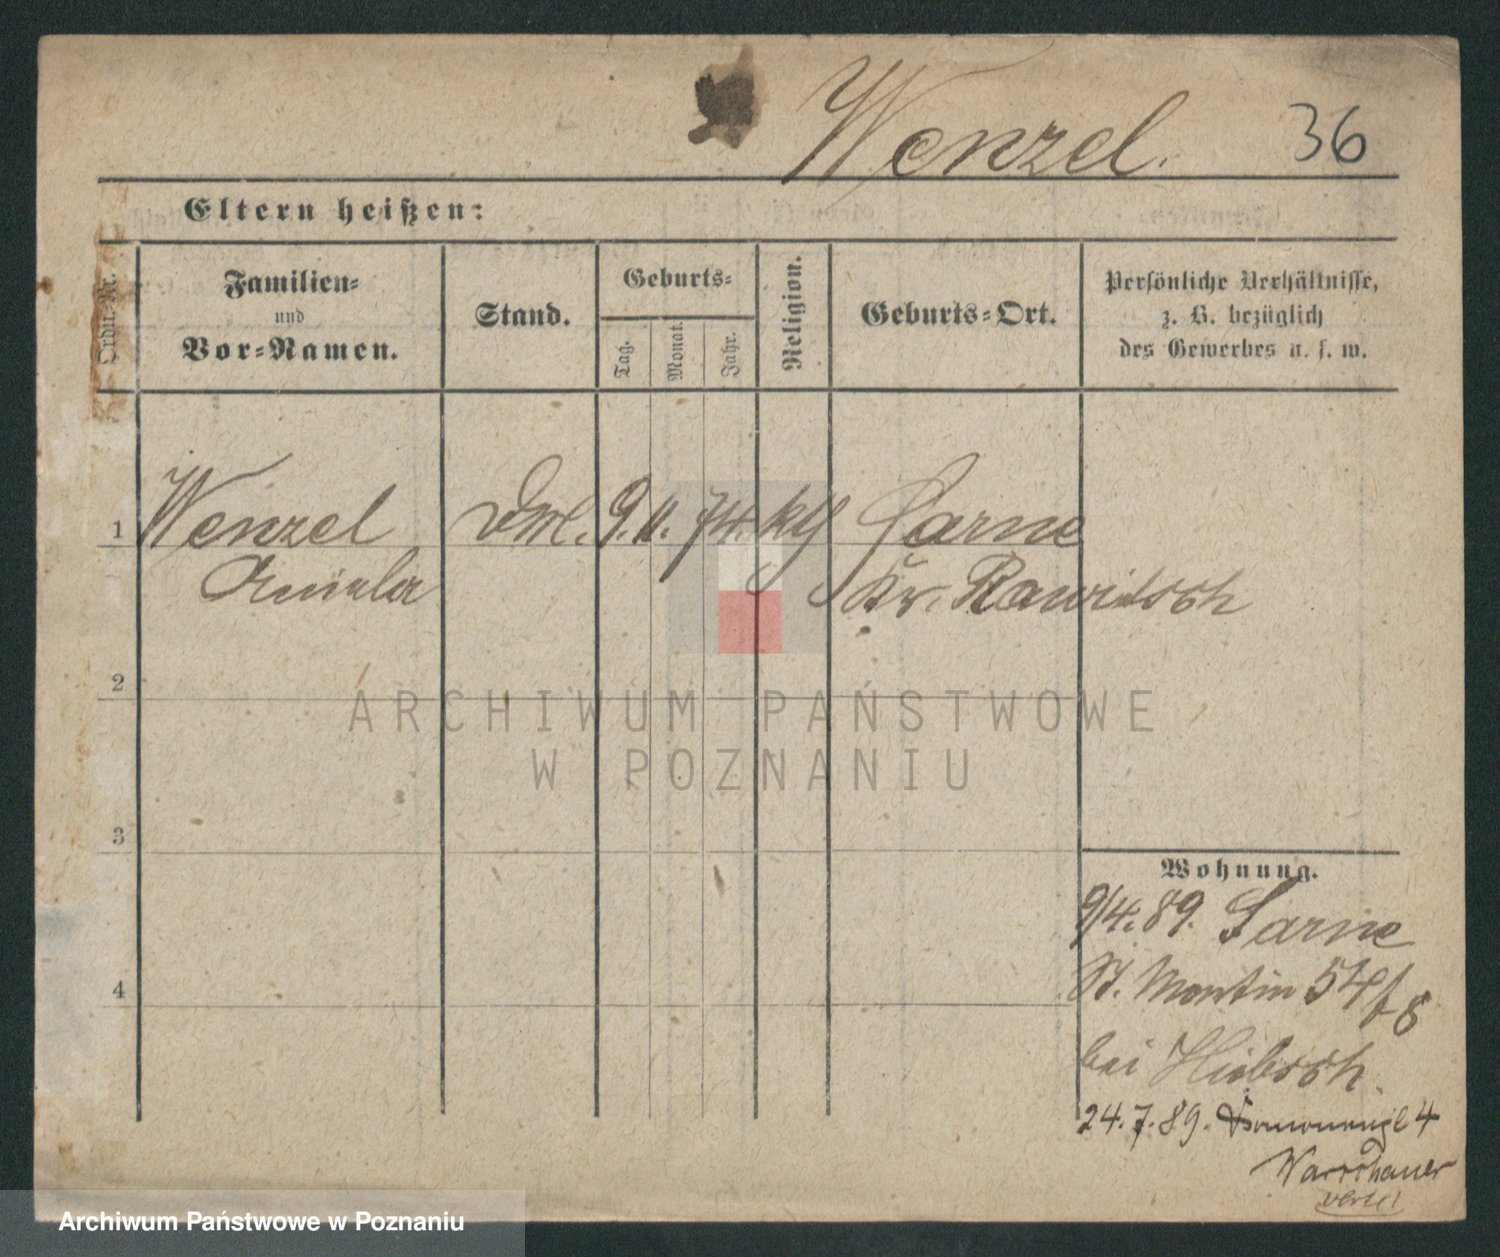 Wenzel.
36
Eltern heißen:
Ordn.-Nr.
Familien-
und
Vor-Namen.
Stand.
Geburts-
Tag.
Monat.
Jahr.
Religion.
Geburts-Ort.
Persönliche Verhältnisse,
z. B. bezüglich
des Gewerbes u. s. w.
1 Wenzel 9. 11. 74. kth Sarne
Kr. Rawitsch
2
ARCHIWUM PAŃSTWOWE
W POZNANIU
3
Wohnung.
9/4. 89. Sarne
St. Martin 54/
bei Hübsch
4
24. 7. 89. 4
Warschauer
verte!
Archiwum Państwowe w Poznaniu